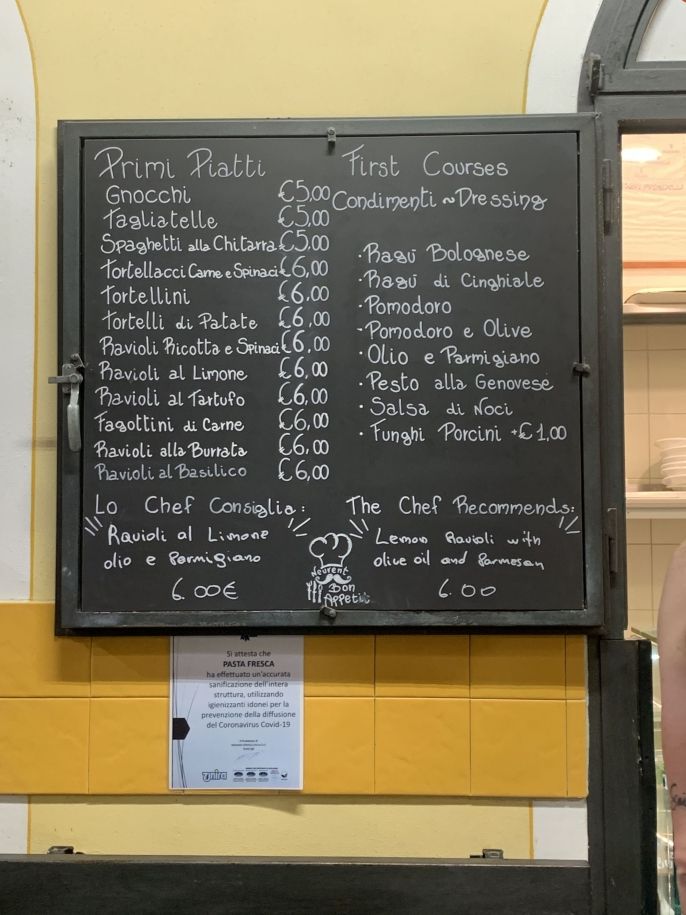 Primi Piatti
Gnocchi €5,00
Tagliatelle €5,00
Spaghetti alla Chitarra €5,00
Tortellacci Carne e Spinaci €6,00
Tortellini €6,00
Tortelli di Patate €6,00
Ravioli Ricotta e Spinaci €6,00
Ravioli al Limone €6,00
Ravioli al Tartufo €6,00
Fagottini di Carne €6,00
Ravioli alla Burrata €6,00
Ravioli al Basilico €6,00
First Courses
Condimenti ~ Dressing
· Ragú Bolognese
· Ragú di Cinghiale
· Pomodoro
· Pomodoro e Olive
· Olio e Parmigiano
· Pesto alla Genovese
· Salsa di Noci
· Funghi Porcini +€1,00
Lo Chef Consiglia:
Ravioli al Limone
olio e Parmigiano
6.00€
The Chef Recommends:
Lemon Ravioli with
olive oil and Parmesan
6.00
Bon
Appetit
Si attesta che
PASTA FRESCA
ha effettuato un'accurata
sanificazione dell'intera
struttura, utilizzando
igienizzanti idonei per la
prevenzione della diffusione
del Coronavirus Covid-19